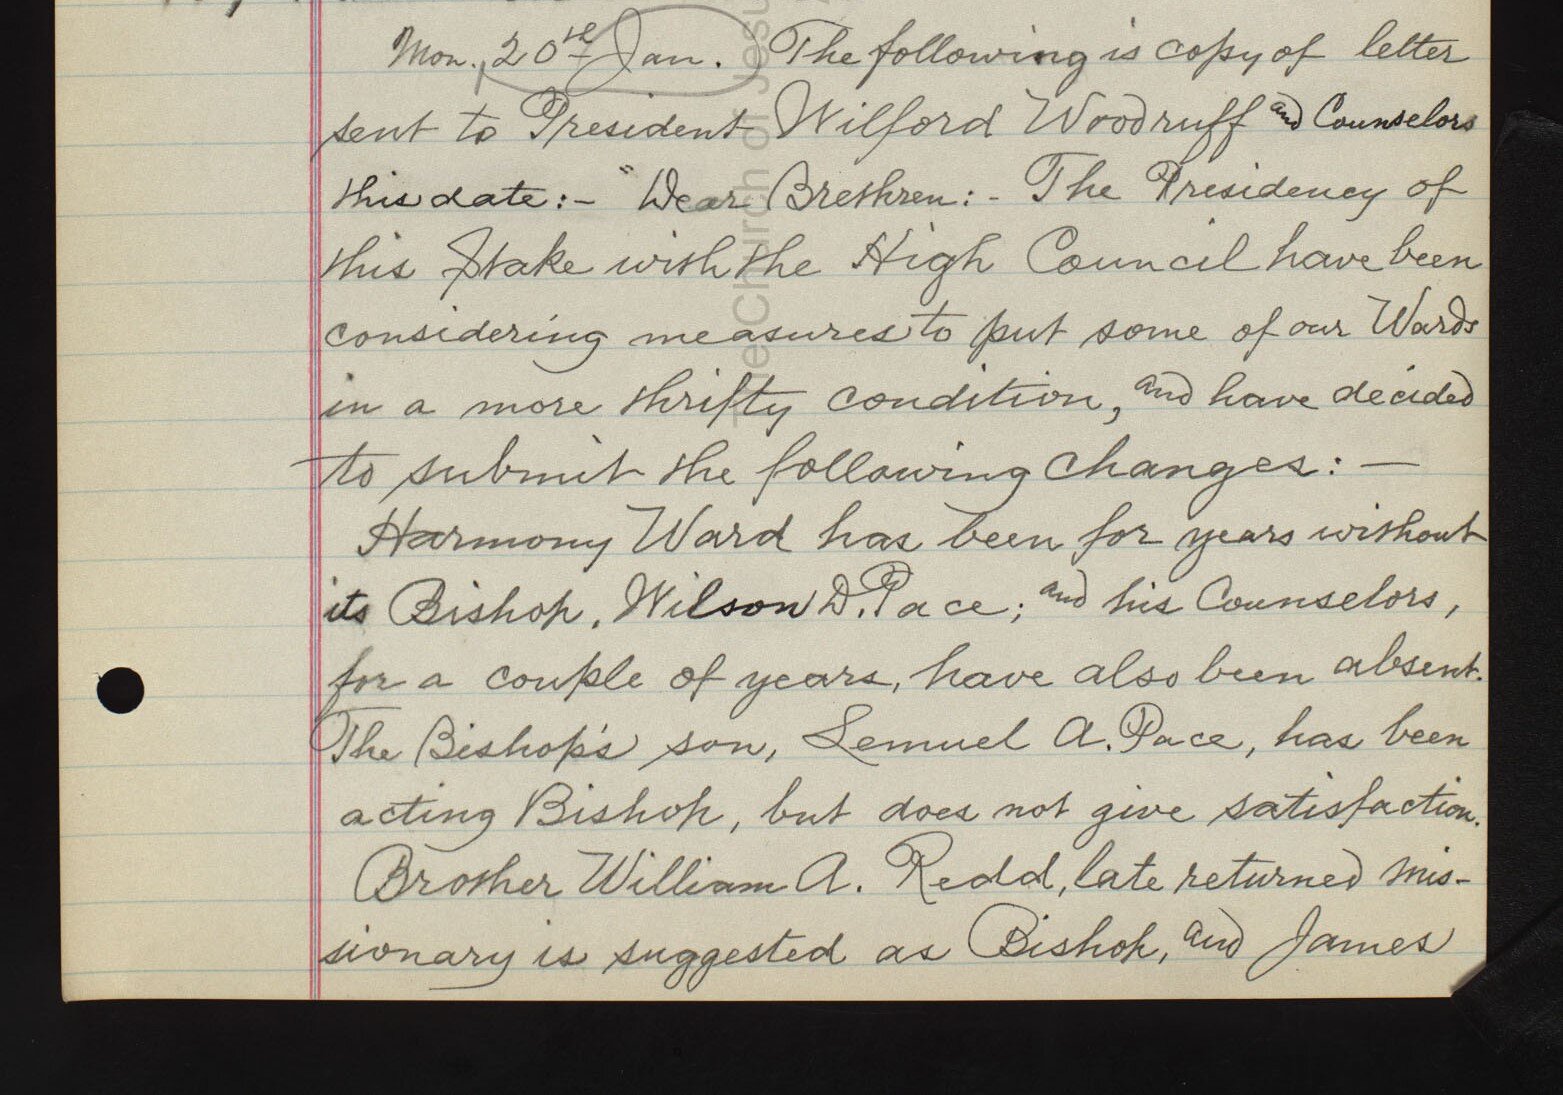 Mon., 20th Jan. The following is copy of letter
sent to President Wilford Woodruff and Counselors
this date:- "Dear Brethren:- The Presidency of
this Stake with the High Council have been
considering measures to put some of our Wards
in a more thrifty condition, and have decided
to submit the following changes:—
Harmony Ward has been for years without
its Bishop, Wilson D. Pace; and his Counselors,
for a couple of years, have also been absent.
The Bishop's son, Lemuel A. Pace, has been
acting Bishop, but does not give satisfaction.
Brother William A. Redd, late returned mis-
sionary is suggested as Bishop, and James
The Church of Jesu